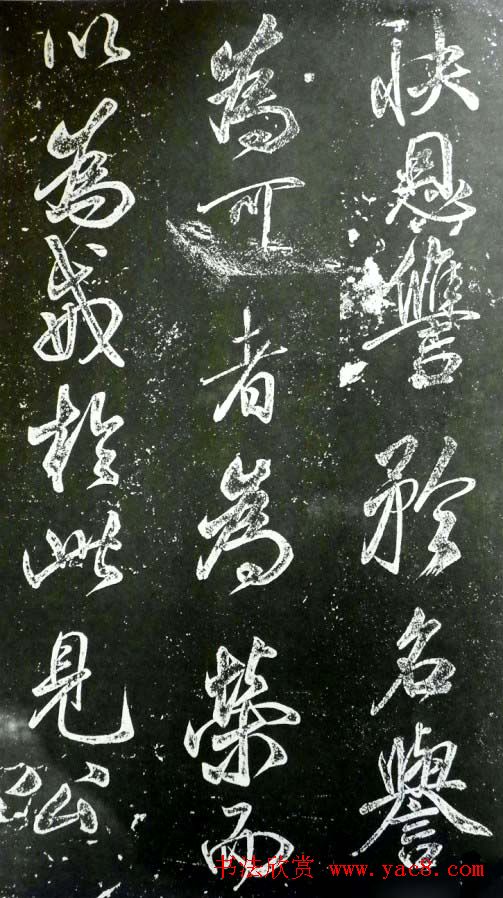 快恩讐矜名譽
為可者為榮而
以為戒於此見公
书法欣赏 www.yac8.com